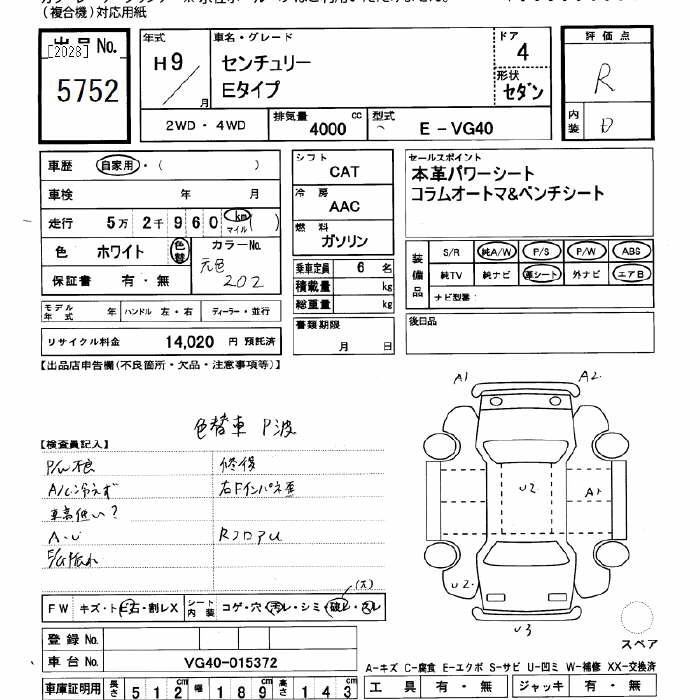 (複合機)対応用紙
出品No.
[2028]
5752
年式
H9
月
車名・グレード
センチュリー
Eタイプ
ドア
4
形状
セダン
評価点
R
内装
D
2WD・4WD
排気量
4000 cc
型式
E-VG40
車歴 自家用・( )
車検 年 月
走行 5万2千960 km マイル( )
色 ホワイト 色替
カラーNo.
元色 202
保証書 有・無
シフト
CAT
冷房
AAC
燃料
ガソリン
乗車定員 6 名
積載量 kg
総重量 kg
書類期限
月 日
セールスポイント
本革パワーシート
コラムオートマ&ベンチシート
装備品
S/R 純A/W P/S P/W ABS
純TV 純ナビ 革シート 外ナビ エアB
ナビ型番:
後日品
モデル年式 年 ハンドル 左・右 ディーラー・並行
リサイクル料金 14,020 円 預託済
【出品店申告欄(不良箇所・欠品・注意事項等)】
色替車 P波
【検査員記入】
P/W不良
A/C冷えず
車高低い?
A・U
修復
右Fインパネ歪
RフロアU
FW キズ・トビ石・割レX
シート内装 コゲ・穴・汚レ・シミ・破レ・スレ
(大)
登録No.
車台No. VG40-015372
車庫証明用 長さ 512 cm 幅 189 cm 高さ 143 cm
A1
A2
U2
A1
U2
U3
スペア
A-キズ C-腐食 E-エクボ S-サビ U-凹ミ W-補修 XX-交換済
工具 有・無 ジャッキ 有・無